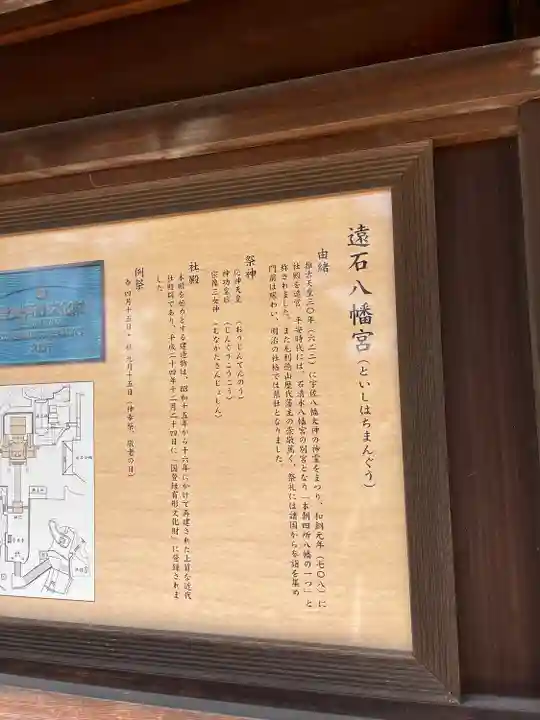 遠石八幡宮(といしはちまんぐう)
由緒
推古天皇三〇年(六二二)に宇佐八幡大神の神霊をまつり、和銅元年(七〇八)に
社殿を造営、平安時代には、石清水八幡宮の別宮となり「本朝四所八幡の一つ」と
称されました。また毛利徳山歴代藩主の崇敬篤く、祭礼には諸国から参詣を集め
門前は賑わい、明治の社格では県社となりました。
祭神
応神天皇 (おうじんてんのう)
神功皇后 (じんぐうこうごう)
宗像三女神 (むなかたさんじょしん)
社殿
本殿を始めとする建造物は、昭和十五年から十六年にかけて再建された上質な近代
社殿群であり、平成二十四年十二月二十四日に「国登録有形文化財」に登録されま
した。
例祭
春 四月十五日・秋 九月十五日(神幸祭、敬老の日)